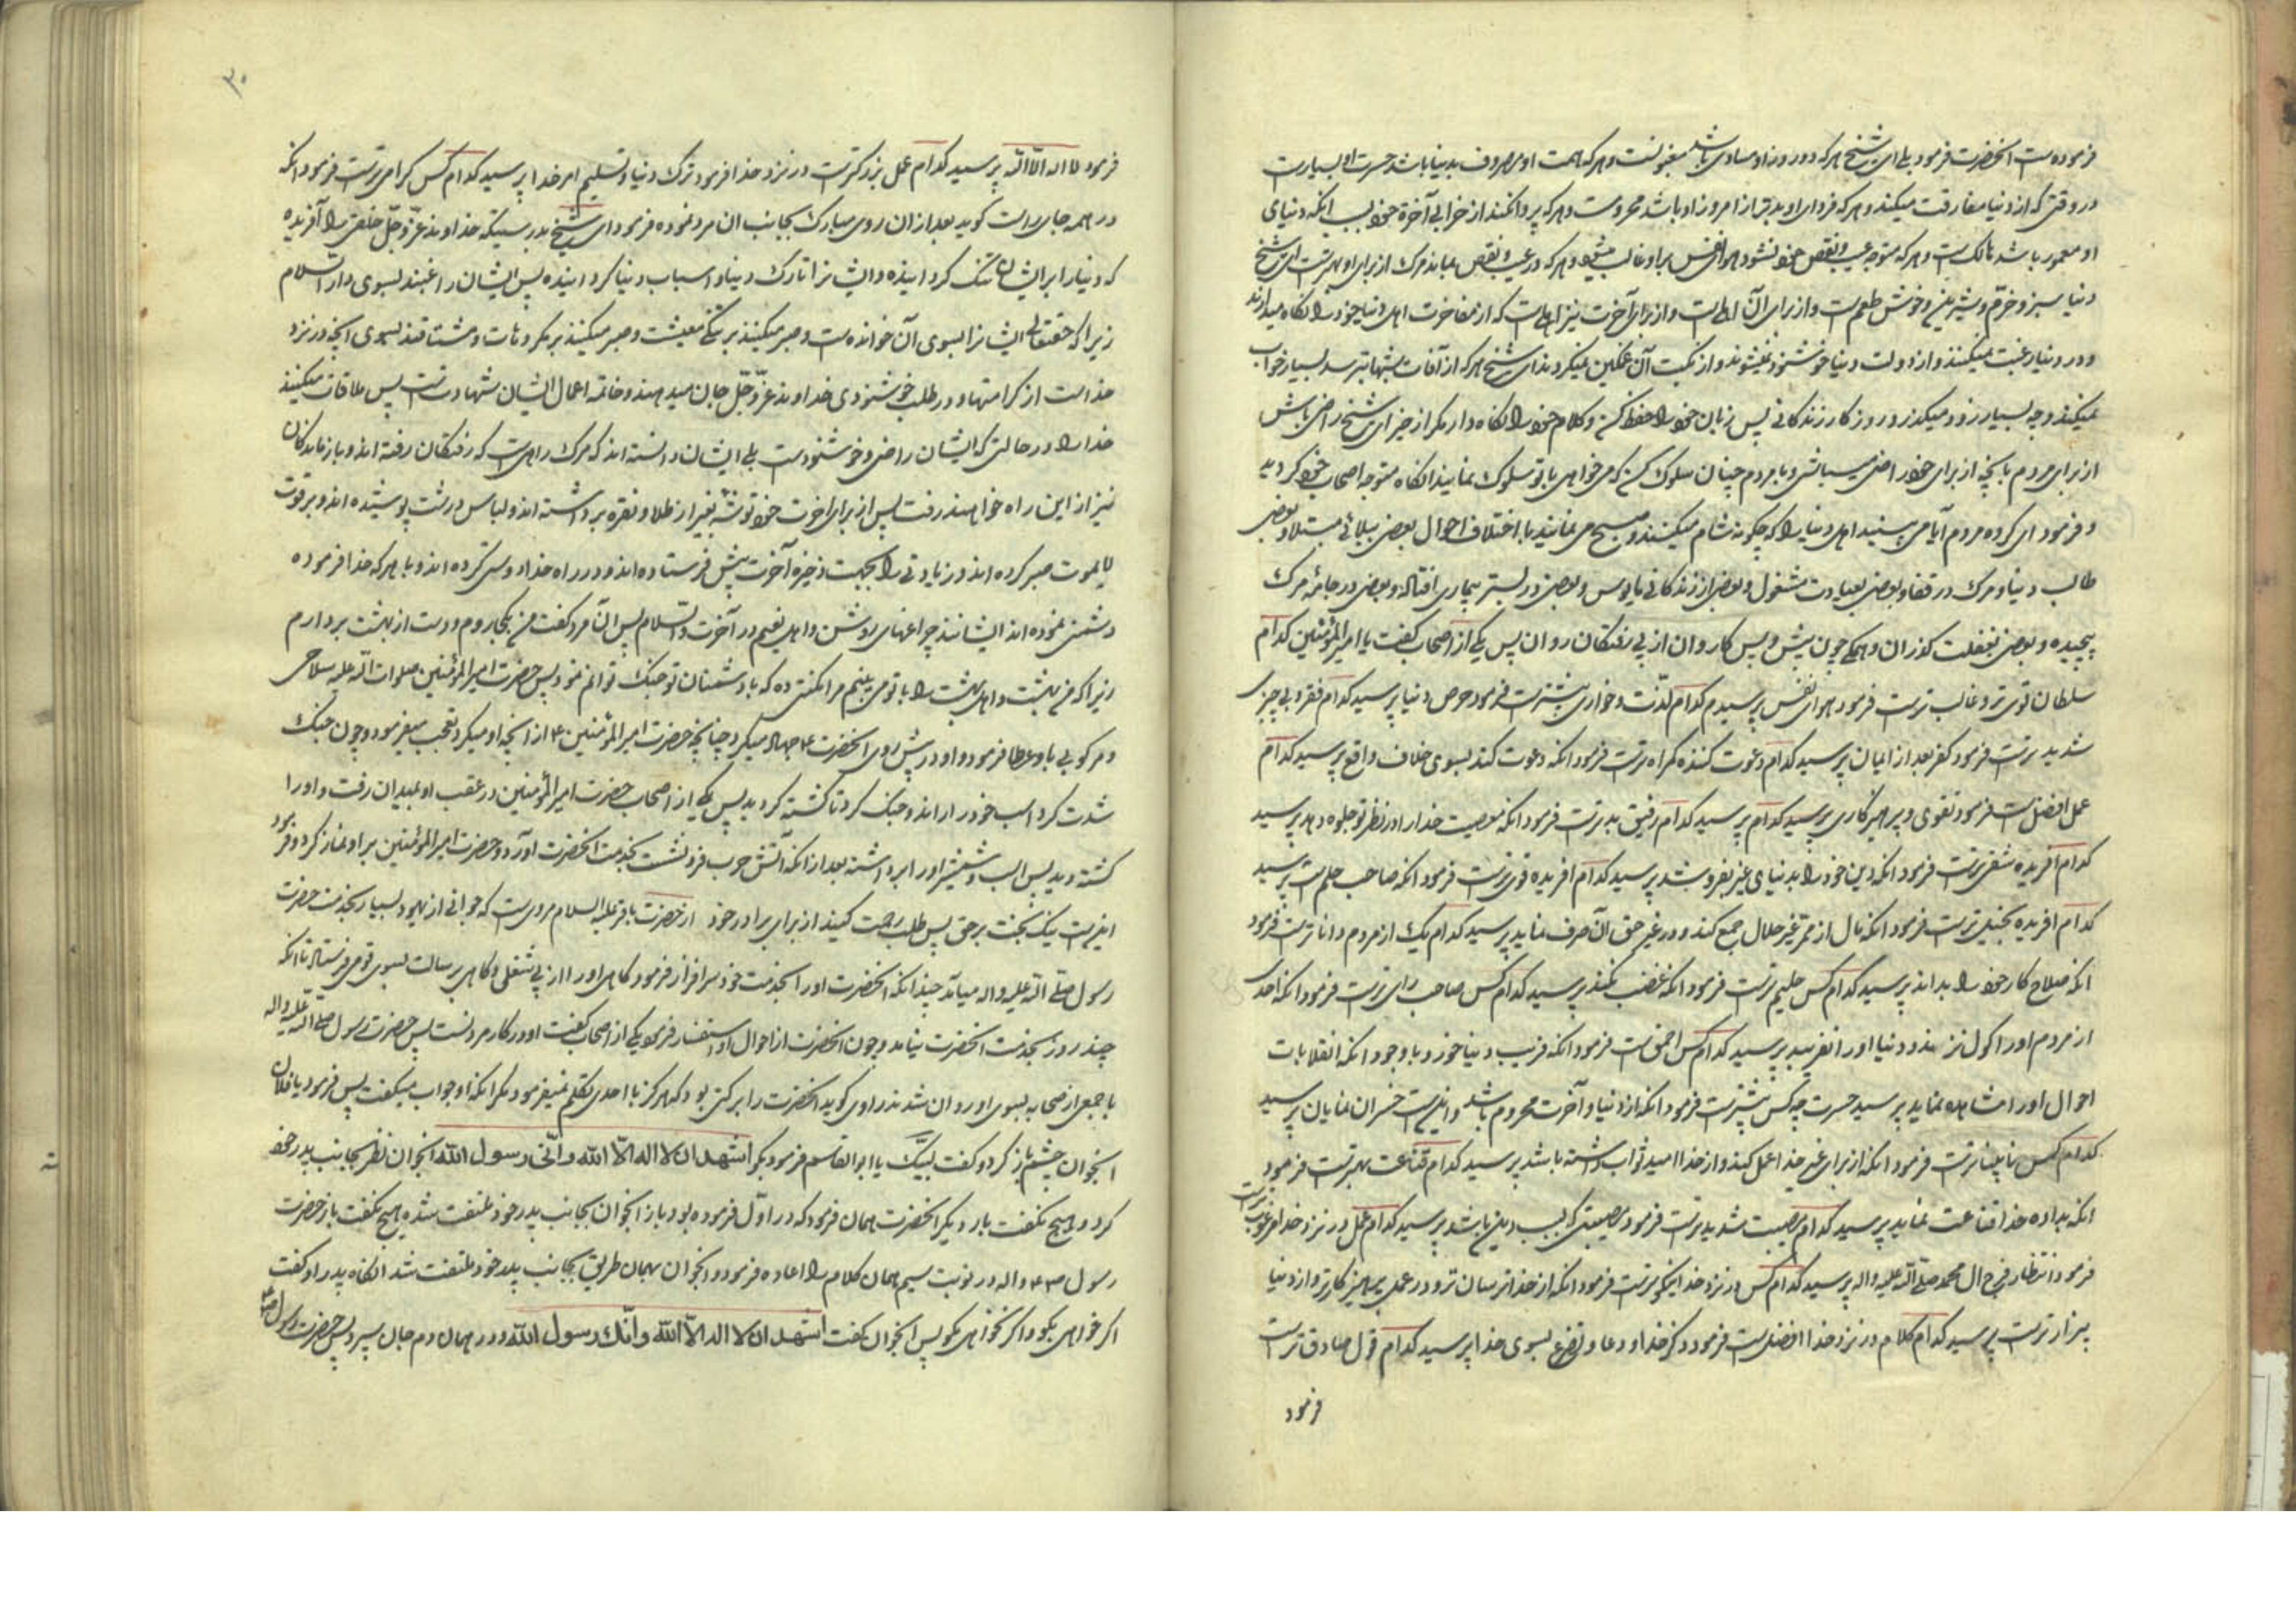 فرموده است انحضرت فرمود بلی ای شیخ هر که دو روز او مساوی باشد مغبونست و هر که همت او مصروف بدنیا باشد حسرت او بسیارست
در وقتی که از دنیا مفارقت میکند و هر که فردای او بدتر از امروز او باشد محرومست و هر که پروا نکند از خرابی آخرة خود بسبب انکه دنیای
او معمور باشد هالک است و هر که متوجه عیب و نقص خود نشود هوای نفس بر او غالب میشود و هر که در عیب و نقص بماند مرک از برای او بهترست ای شیخ
دنیا سبز و خرّم و شیرین و خوش طعم است و از برای آن اهلی است و از برای آخرت نیز اهلی است که از مفاخرت اهل دنیا خود را نکاه میدارند
و در دنیا رغبت میکنند و از دولت دنیا خوشنود نمیشوند و از نکبت آن غمکین نمیکردند ای شیخ هر که از آفات شبها ترسد بسیار خواب
نمیکند و چه بسیار زود میکذرد روزکار زندکانی پس زبان خود را حفظ کن و کلام خود را نکاه دار مکر از خیر ای شیخ راضی باش
از برای مردم بانچه از برای خود راضی میباشی و با مردم چنان سلوک کن که میخواهی با تو سلوک نمایند انکاه متوجه اصحاب خود کردید
و فرمود ای کروه مردم آیا نمی بینید اهل دنیا را که چکونه شام میکنند و صبح می نمایند با اختلاف احوال بعضی ببلائی مبتلا و بعضی
طالب دنیا و مرک در قفا و بعضی بعیادت مشغول و بعضی از زندکانی مایوس و بعضی در بستر بیماری افتاده و بعضی در جامۀ مرک
پیچیده و بعضی بغفلت کذران و همکی چون پیش و پس کاروان از پی رفتکان روان پس یکی از اصحاب کفت یا امیر المؤمنین کدام
سلطان قوی تر و غالب ترست فرمود هوای نفس پرسیدم کدام لذّت و خواری بیشترست فرمود حرص دنیا پرسید کدام فقر و بی چیزی
شدید ترست فرمود کفر بعد از ایمان پرسید کدام دعوت کننده کمراه ترست فرمود انکه دعوت کند بسوی خلاف واقع پرسید کدام
عمل افضل است فرمود تقوی و پرهیزکاری پرسید کدام پرسید کدام رفیق بدترست فرمود انکه معصیت خدا را در نظر تو جلوه دهد پرسید
کدام آفریده شقی ترست فرمود انکه دین خود را بدنیای غیر بفروشد پرسید کدام افریده قوی ترست فرمود انکه صاحب حلم است پرسید
کدام افریده بخیل ترست فرمود انکه مال از ممر غیر حلال جمع کند و در غیر حق آن صرف نماید پرسید کدام یک از مردم داناترست فرمود
انکه صلاح کار خود را بداند پرسید کدام کس حلیم ترست فرمود انکه غضب نکند پرسید کدام کس صاحب رای ترست فرمود انکه احدی
از مردم او را کول نزند و دنیا او را نفریبد پرسید کدام کس احمق است فرمود انکه فریب دنیا خورد با وجود انکه انقلابات
احوال او را مشاهده نماید پرسید حسرت چه کس بیشترست فرمود انکه از دنیا و آخرت محروم باشد و اینست خسران نمایان پرسید
کدام کس نابیناترست فرمود انکه از برای غیر خدا عمل کند و از خدا امید ثواب داشته باشد پرسید کدام قناعت بهترست فرمود
انکه بداده خدا قناعت نماید پرسید کدام مصیبت شدیدترست فرمود مصیبتی که بسبب دین باشد پرسید کدام عمل در نزد خدا مرغوب ترست
فرمود انتظار فرج ال محمد صلی الله علیه و اله پرسید کدام کس در نزد خدا نیکوترست فرمود انکه از خدا ترسان تر و در عمل پرهیزکارتر و از دنیا
بیزارترست پرسید کدام کلام در نزد خدا افضل است فرمود ذکر خدا و دعا و تضرع بسوی خدا پرسید کدام قول صادق ترست
فرمود
۳۰
فرمود لا اله الّا الله پرسید کدام عمل بزرکترست در نزد خدا فرمود ترک دنیا و تسلیم امر خدا پرسید کدام کس کرامی ترست فرمود انکه
در همه جای راست کوید بعد از ان روی مبارک بجانب ان مرد نموده فرمود ای شیخ بدرستیکه خداوند عزّ و جلّ خلقی را آفریده
که دنیا را بر ایشان تنک کردانیده و ایشانرا تارک دنیا و اسباب دنیا کردانیده پس ایشان راغبند بسوی دار السلام
زیرا که حقتعالی ایشانرا بسوی آن خوانده است و صبر میکنند بر تنکی معیشت و صبر میکنند بر مکروهات و مشتاقند بسوی انچه در نزد
خداست از کرامتها و در طلب خوشنودی خداوند عزّ و جلّ جان میدهند و خاتمه اعمال ایشان شهادت است پس ملاقات میکنند
خدا را در حالتی که ایشان راضی و خوشنودست بلی ایشان دانسته اند که مرک راهی است که رفتکان رفته اند و بازماندکان
نیز از این راه خواهند رفت پس از برای اخرت خود توشه بغیر از طلا و نقره برداشته اند و لباس درشت پوشیده اند و بر قوت
لا یموت صبر کرده اند و زیادتی را بجهت ذخیره آخرت پیش فرستاده اند و در راه خدا دوستی کرده اند و با هر که خدا فرموده
دشمنی نموده اند ایشانند چراغهای روشن و اهل نعیم در آخرت و السلام پس آن مرد کفت من بکجا روم و دست از بهشت بردارم
زیرا که من بهشت و اهل بهشت را با تو می بینم مرا مکنتی ده که با دشمنان تو جنک توانم نمود پس حضرت امیر المؤمنین صلوات الله علیه سلاحی
و مرکوبی باو عطا فرمود و او در پیش روی انحضرت ۴ جهاد میکرد چنانچه حضرت امیر المؤمنین ۴ از انچه او میکرد تعجب میفرمود و چون جنک
شدت کرد اسب خود را راند و جنک کرد تا کشته کردید پس یکی از اصحاب حضرت امیر المؤمنین در عقب او بمیدان رفت و او را
کشته دید پس اسب و شمشیر او را برداشته بعد از انکه آتش حرب فرو نشست بخدمت انحضرت آورد و حضرت امیر المؤمنین بر او نماز کرد و فرمود
اینست نیک بخت بر حق پس طلب رحمت کنید از برای برادر خود از حضرت باقر علیه السلام مرویست که جوانی از یهود بسیار بخدمت حضرت
رسول صلی الله علیه و اله میآمد چندانکه انحضرت او را بخدمت خود سرافراز فرمود کاهی او را از پی شغلی و کاهی برسالت بسوی قومی فرستاد تا انکه
چند روز بخدمت انحضرت نیامد و چون انحضرت از احوال او استفسار فرمود یکی از اصحاب کفت او در کار مردنست پس حضرت رسول صلی الله علیه و اله
با جمعی از صحابه بسوی او روان شدند راوی کوید انحضرت را برکتی بود که هرکز با احدی تکلم نمیفرمود مکر انکه او جواب میکفت پس فرمود یا فلان
انجوان چشم باز کرد و کفت لبیک یا ابوالقاسم فرمود بکو اشهد ان لا اله الّا الله و انّی رسول الله انجوان نظر بجانب پدر خود
کرد و هیچ نکفت بار دیکر انحضرت همان فرمود که در اوّل فرموده بود باز انجوان بجانب پدر خود ملتفت شده هیچ نکفت باز حضرت
رسول ص و اله در نوبت سیم همان کلام را اعاده فرمود و انجوان بهمان طریق بجانب پدر خود ملتفت شد انکاه پدر او کفت
اکر خواهی بکو و اکر نخواهی مکو پس انجوان کفت اشهد ان لا اله الّا الله و انّک رسول الله و در همان دم جان سپرد پس حضرت رسول ص